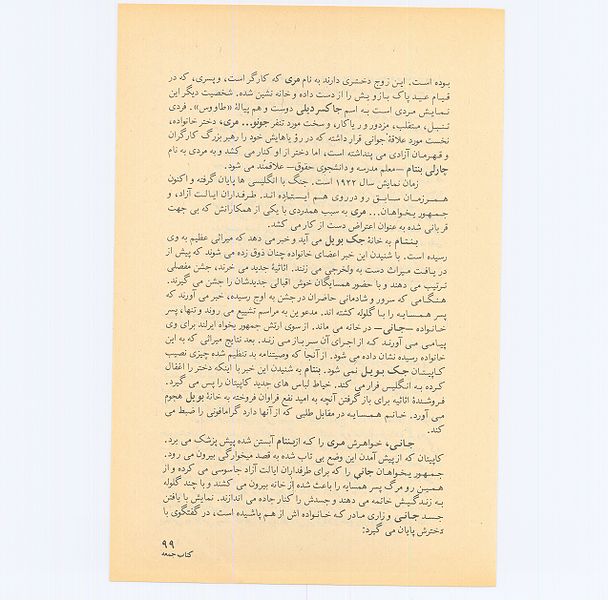 بوده است. این زوج دختری دارند به نام مری که کارگر است، و پسری، که در
قیام عید پاک بازویش را از دست داده و خانه نشین شده. شخصیت دیگر این
نمایش مردی است به اسم جاکسر دیلی دوست و هم پیالهٔ «طاووس». فردی
تنبل، متقلب، مزدور و ریاکار، و سخت مورد تنفر جونو... مری، دختر خانواده،
نخست مورد علاقهٔ جوانی قرار داشته که در رؤیاهایش خود را رهبر بزرگ کارگران
و قهرمان آزادی می پنداشته است، اما دختر از او کناره می کشد و به مردی به نام
چارلی بنتام —معلم مدرسه و دانشجوی حقوق— علاقمند می شود.
زمان نمایش سال ۱۹۲۲ است. جنگ با انگلیسی ها پایان گرفته و اکنون
همرزمان سابق رو در روی هم ایستاده اند. طرفداران ایالت آزاد، و
جمهوریخواهان... مری به سبب همدردی با یکی از همکارانش که بی جهت
قربانی شده به عنوان اعتراض دست از کار می کشد.
بنتام به خانهٔ جک بویل می آید و خبر می دهد که میراثی عظیم به وی
رسیده است. با شنیدن این خبر اعضای خانواده چنان ذوق زده می شوند که پیش از
دریافت میراث دست به ولخرجی می زنند. اثاثیهٔ جدید می خرند، جشن مفصلی
ترتیب می دهند و با حضور همسایگان خوش اقبالی جدیدشان را جشن می گیرند.
هنگامی که سرور و شادمانی حاضران در جشن به اوج رسیده، خبر می آورند که
پسر همسایه را با گلوله کشته اند. مدعوین به مراسم تشییع می روند و تنها، پسر
خانواده —جانی— در خانه می ماند. از سوی ارتش جمهوریخواه ایرلند برای وی
پیامی می آورند که از اجرای آن سر باز می زند. بعد نتایج میراثی که به این
خانواده رسیده نشان داده می شود. از آنجا که وصیتنامه بد تنظیم شده چیزی نصیب
کاپیتان جک بویل نمی شود. بنتام به شنیدن این خبر با اینکه دختر را اغفال
کرده به انگلیس فرار می کند. خیاط لباس های جدید کاپیتان را پس می گیرد.
فروشندهٔ اثاثیه برای بازگرفتن آنچه به امید نفع فراوان فروخته به خانهٔ بویل هجوم
می آورد. خانم همسایه در مقابل طلبی که از آنها دارد گرامافونی را ضبط می
کند.
جانی، خواهرش مری را که از بنتام آبستن شده پیش پزشک می برد.
کاپیتان که از پیش آمدن این وضع بی تاب شده به قصد میخوارگی بیرون می رود.
جمهوریخواهان جانی را که برای طرفداران ایالت آزاد جاسوسی می کرده و از
همین رو مرگ پسر همسایه را باعث شده از خانه بیرون می کشند و با چند گلوله
به زندگیش خاتمه می دهند و جسدش را کنار جاده می اندازند. نمایش با یافتن
جسد جانی و زاری مادر که خانواده اش از هم پاشیده است، در گفتگوی با
دخترش پایان می گیرد:
۹۹
کتاب جمعه